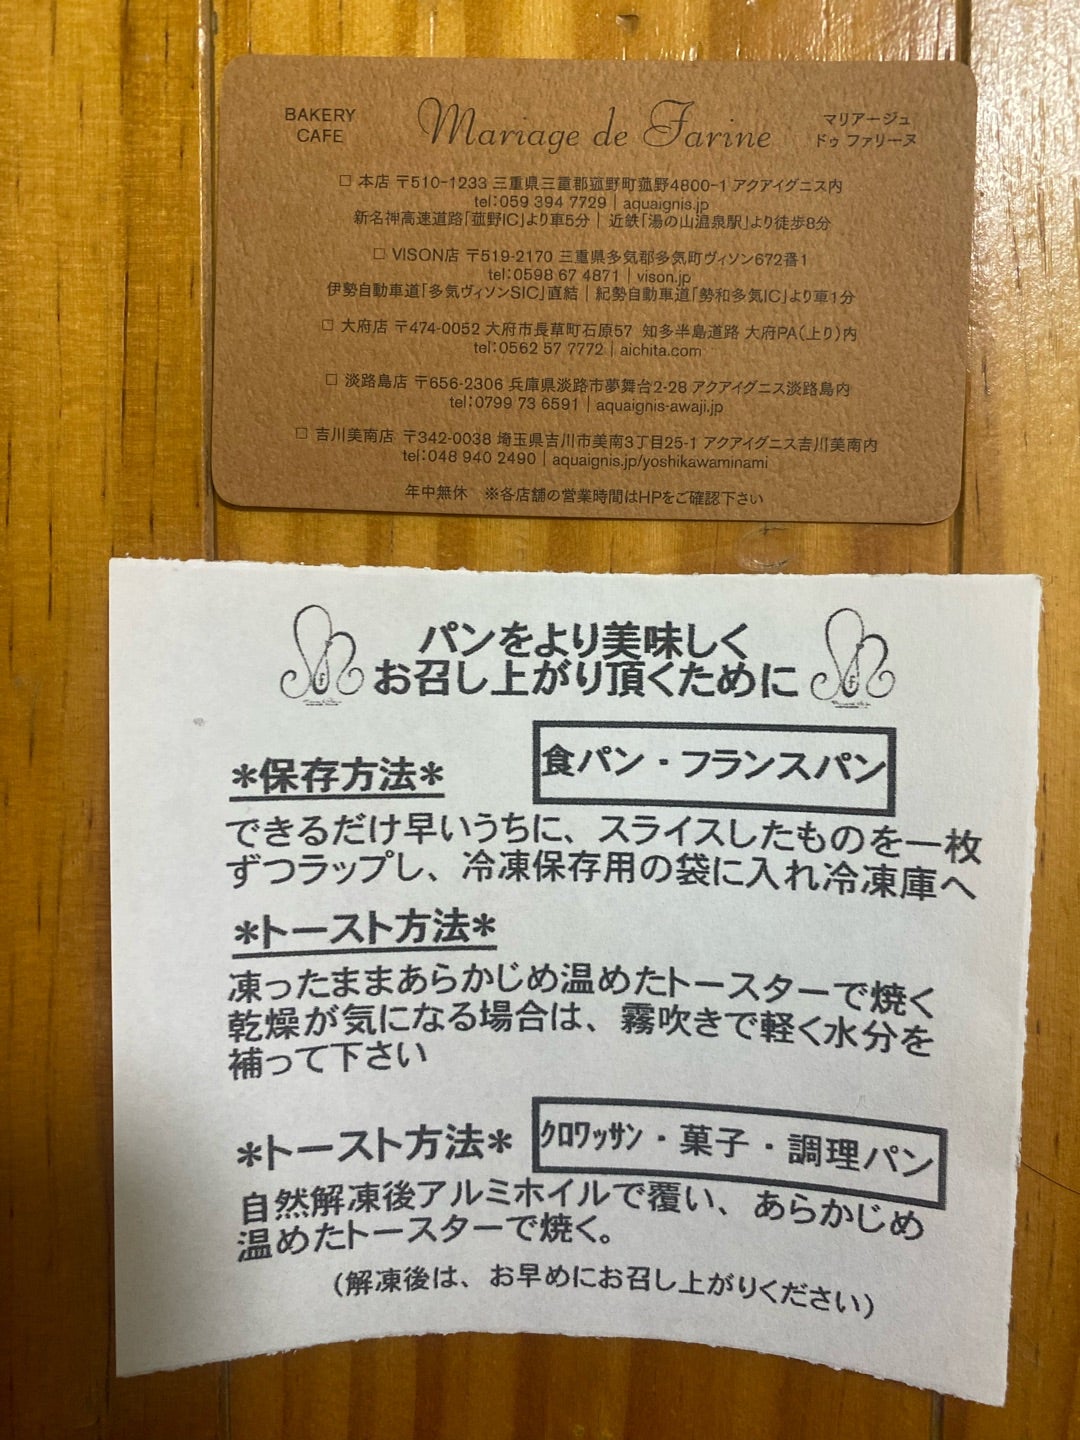 BAKERY
CAFE
Mariage de Farine
マリアージュ
ドゥ ファリーヌ
□ 本店 〒510-1233 三重県三重郡菰野町菰野4800-1 アクアイグニス内
tel:059 394 7729 | aquaignis.jp
新名神高速道路「菰野IC」より車5分 | 近鉄「湯の山温泉駅」より徒歩8分
□ VISON店 〒519-2170 三重県多気郡多気町ヴィソン672番1
tel:0598 67 4871 | vison.jp
伊勢自動車道「多気ヴィソンSIC」直結 | 紀勢自動車道「勢和多気IC」より車1分
□ 大府店 〒474-0052 大府市長草町石原57 知多半島道路 大府PA(上り)内
tel:0562 57 7772 | aichita.com
□ 淡路島店 〒656-2306 兵庫県淡路市夢舞台2-28 アクアイグニス淡路島内
tel:0799 73 6591 | aquaignis-awaji.jp
□ 吉川美南店 〒342-0038 埼玉県吉川市美南3丁目25-1 アクアイグニス吉川美南内
tel:048 940 2490 | aquaignis.jp/yoshikawaminami
年中無休 ※各店舗の営業時間はHPをご確認下さい
パンをより美味しく
お召し上がり頂くために
*保存方法*
食パン・フランスパン
できるだけ早いうちに、スライスしたものを一枚
ずつラップし、冷凍保存用の袋に入れ冷凍庫へ
*トースト方法*
凍ったままあらかじめ温めたトースターで焼く
乾燥が気になる場合は、霧吹きで軽く水分を
補って下さい
*トースト方法*
クロワッサン・菓子・調理パン
自然解凍後アルミホイルで覆い、あらかじめ
温めたトースターで焼く。
(解凍後は、お早めにお召し上がりください)